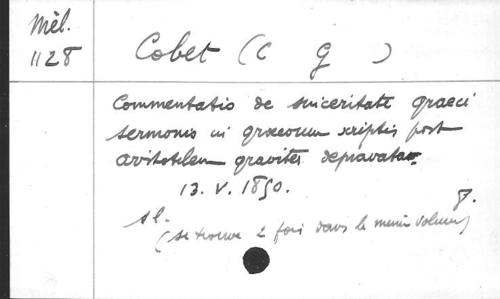 Mél.
1128
Cobet (C G )
Commentatio de sinceritate graeci
sermonis in graecorum scriptis post
aristotelem graviter depravatae
13. V. 1850.
8.
sl.
(se trouve 2 fois dans le même volume)